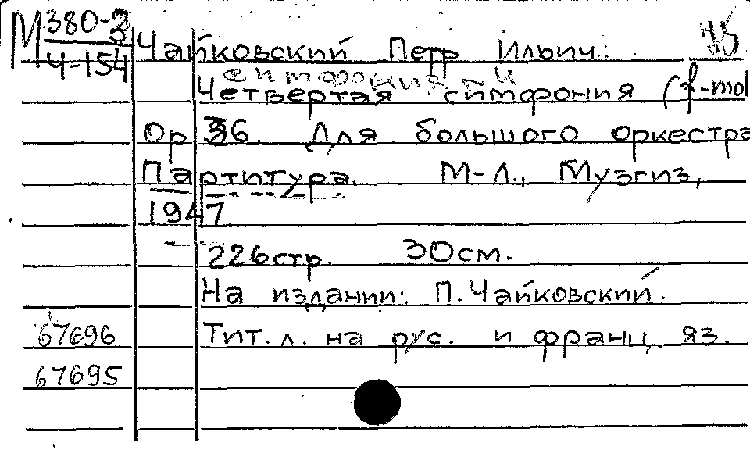 М 380-3
Ч-154
Чайковский Петр Ильич. 45
симфония 4
Четвертая симфония (f-mol
Ор 36. Для большого оркестра
Партитура. М-Л., Музгиз,
1947
226стр. 30см.
На издании: П. Чайковский.
67696 Тит. л. на рус. и франц. яз.
67695